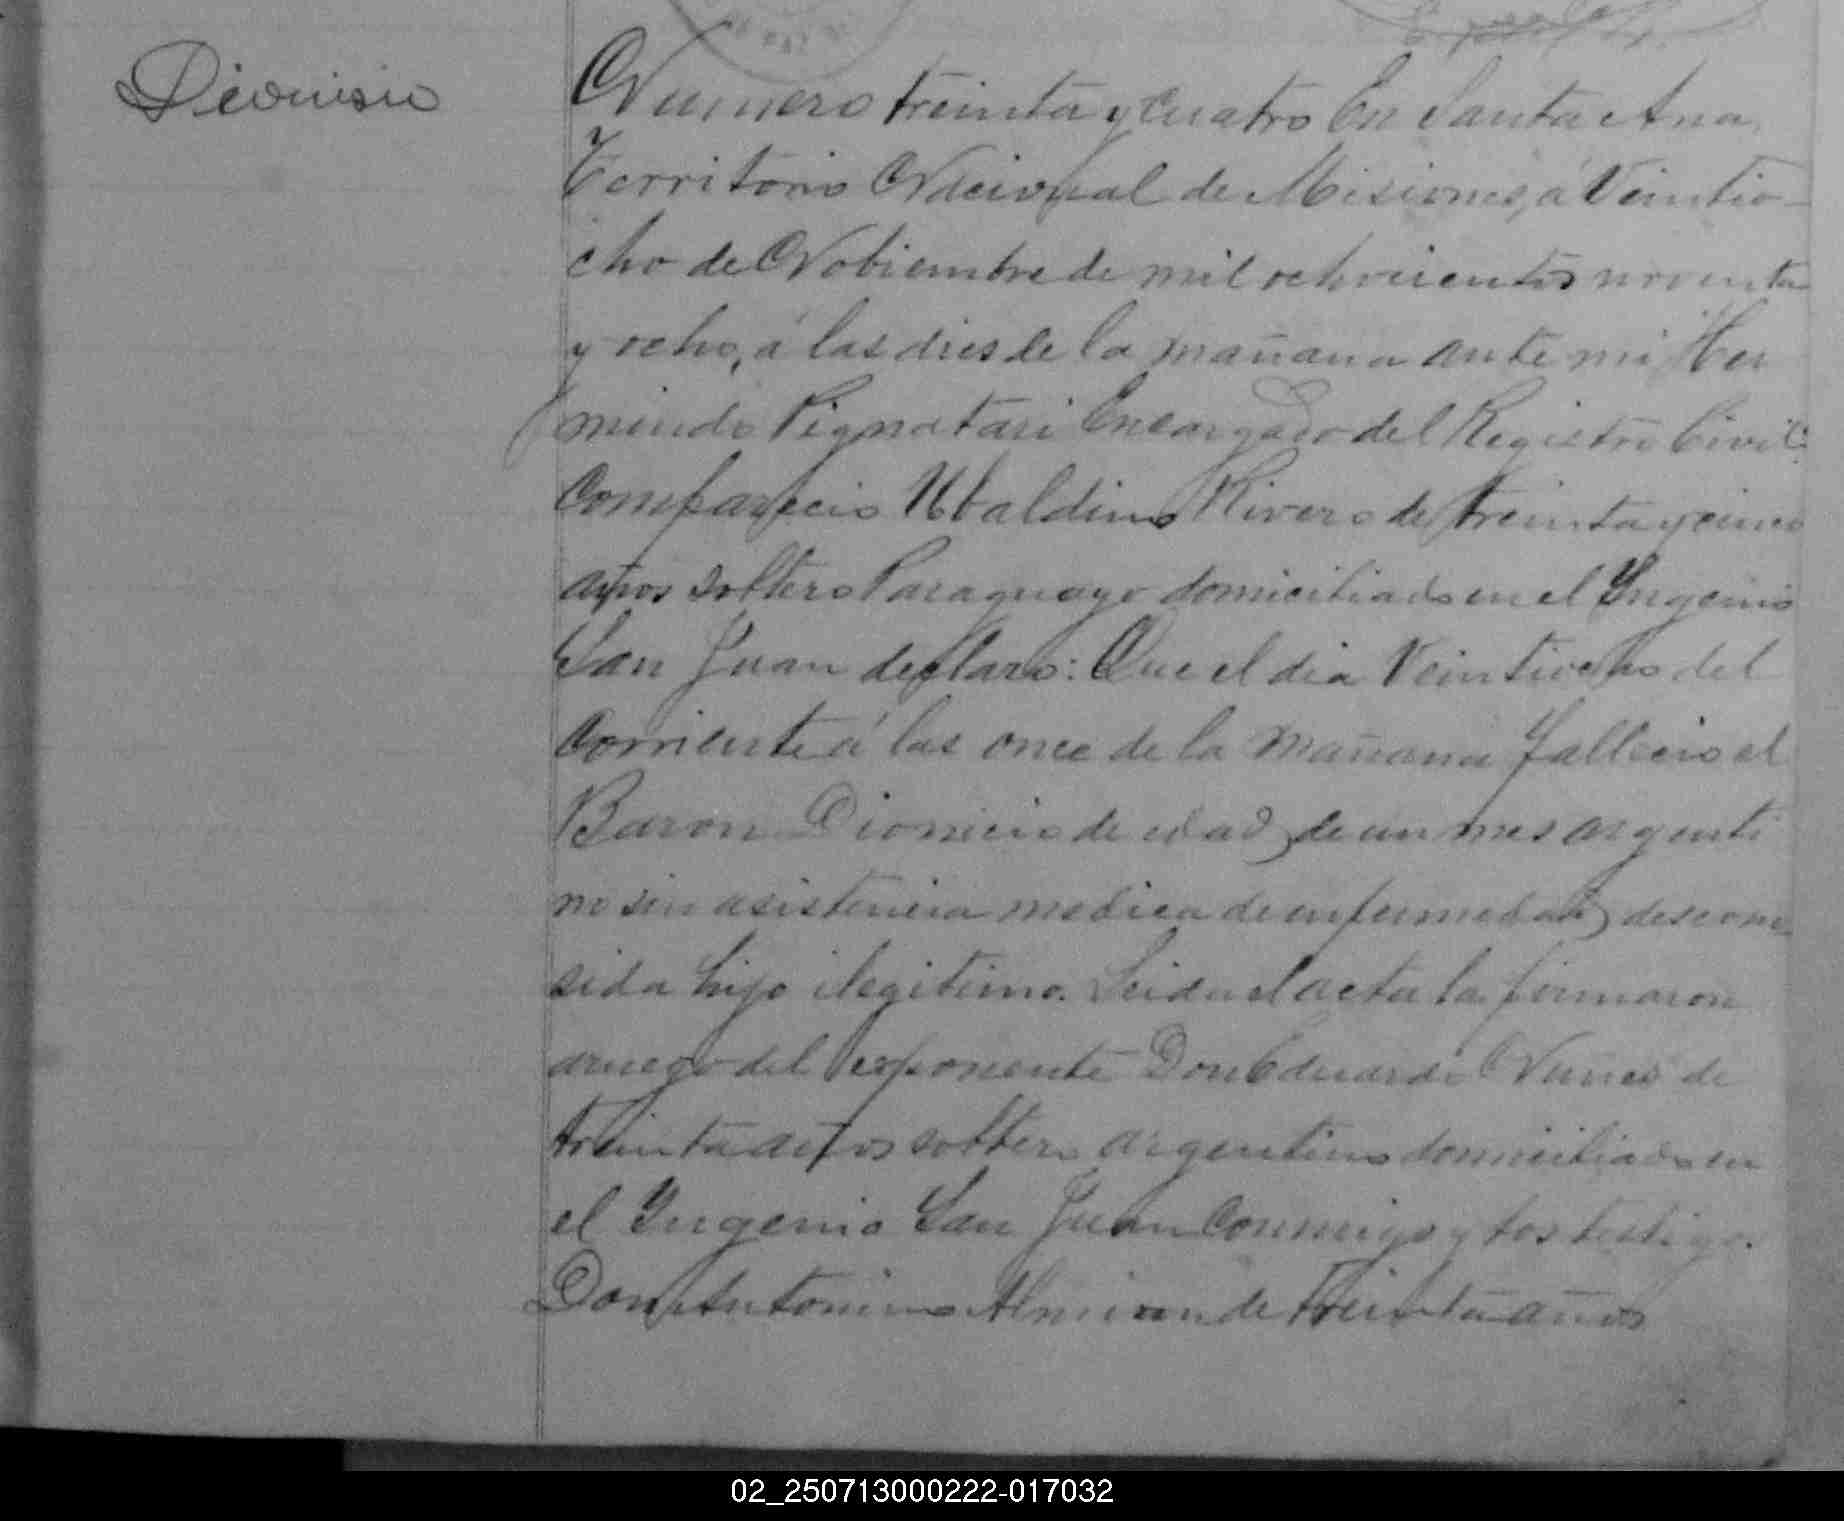 Dionisio
Numero treinta y cuatro En Santa Ana,
Territorio Nacional de Misiones, á Veintio-
cho de Nobiembre de mil ochocientos noventa
y ocho, á las dies de la mañana ante mi Her
mindo Pignatari Encargado del Registro Civil:
Comparecio Ubaldino Rivero de treinta y cinco
años soltero Paraguayo domiciliado en el Ingenio
San Juan declaro: Que el dia Veintiocho del
Corriente á las once de la mañana fallecio el
Baron Dionicio de edad de un mes argenti
no sin asistencia medica de enfermedad descono
sida hijo ilegitimo. Leida el acta la firmaron
aruego del exponente Don Eduardo Nunes de
treinta años soltero argentino domiciliado en
el Ingenio San Juan Conmigo y los testigos
Don Antonino Almiron de treinta años
02_250713000222-017032